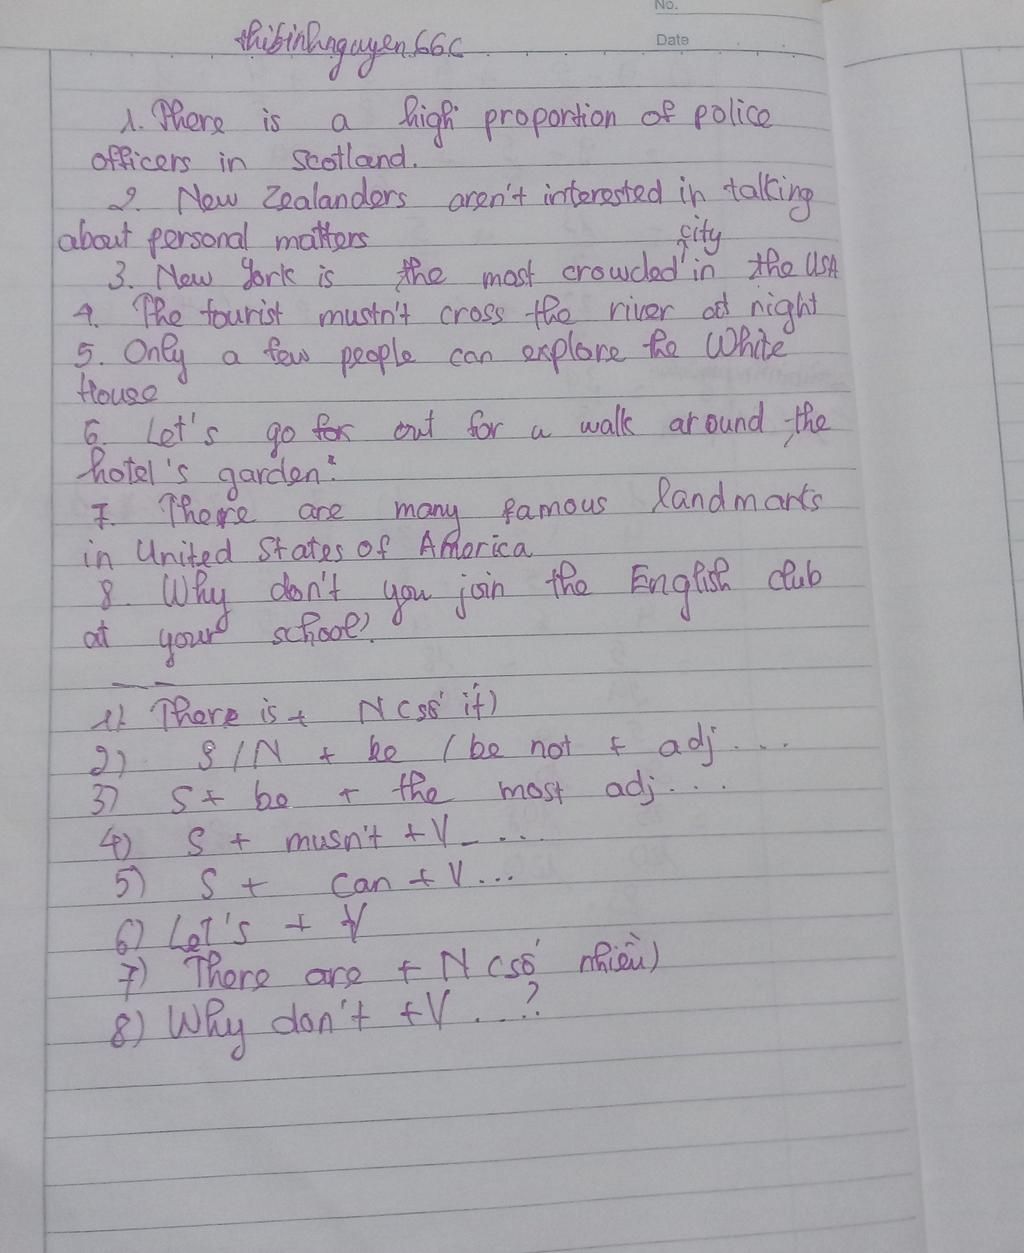 No.
Date
thibinhnguyen66c
1. There is a high proportion of police
officers in Scotland.
2. New Zealanders aren't interested in talking
about personal matters
city
3. New York is the most crowded in the USA
4. The tourist mustn't cross the river at night
5. Only a few people can explore the White
House
6. Let's go for out for a walk around the
hotel's garden.
7. There are many famous landmarks
in United States of America
8. Why don't you join the English club
at your school?
1) There is + N (số ít)
2) S/N + be / be not + adj...
3) S + be + the most adj...
4) S + musn't + V...
5) S + can + V...
6) Let's + V
7) There are + N (số nhiều)
8) Why don't + V...?